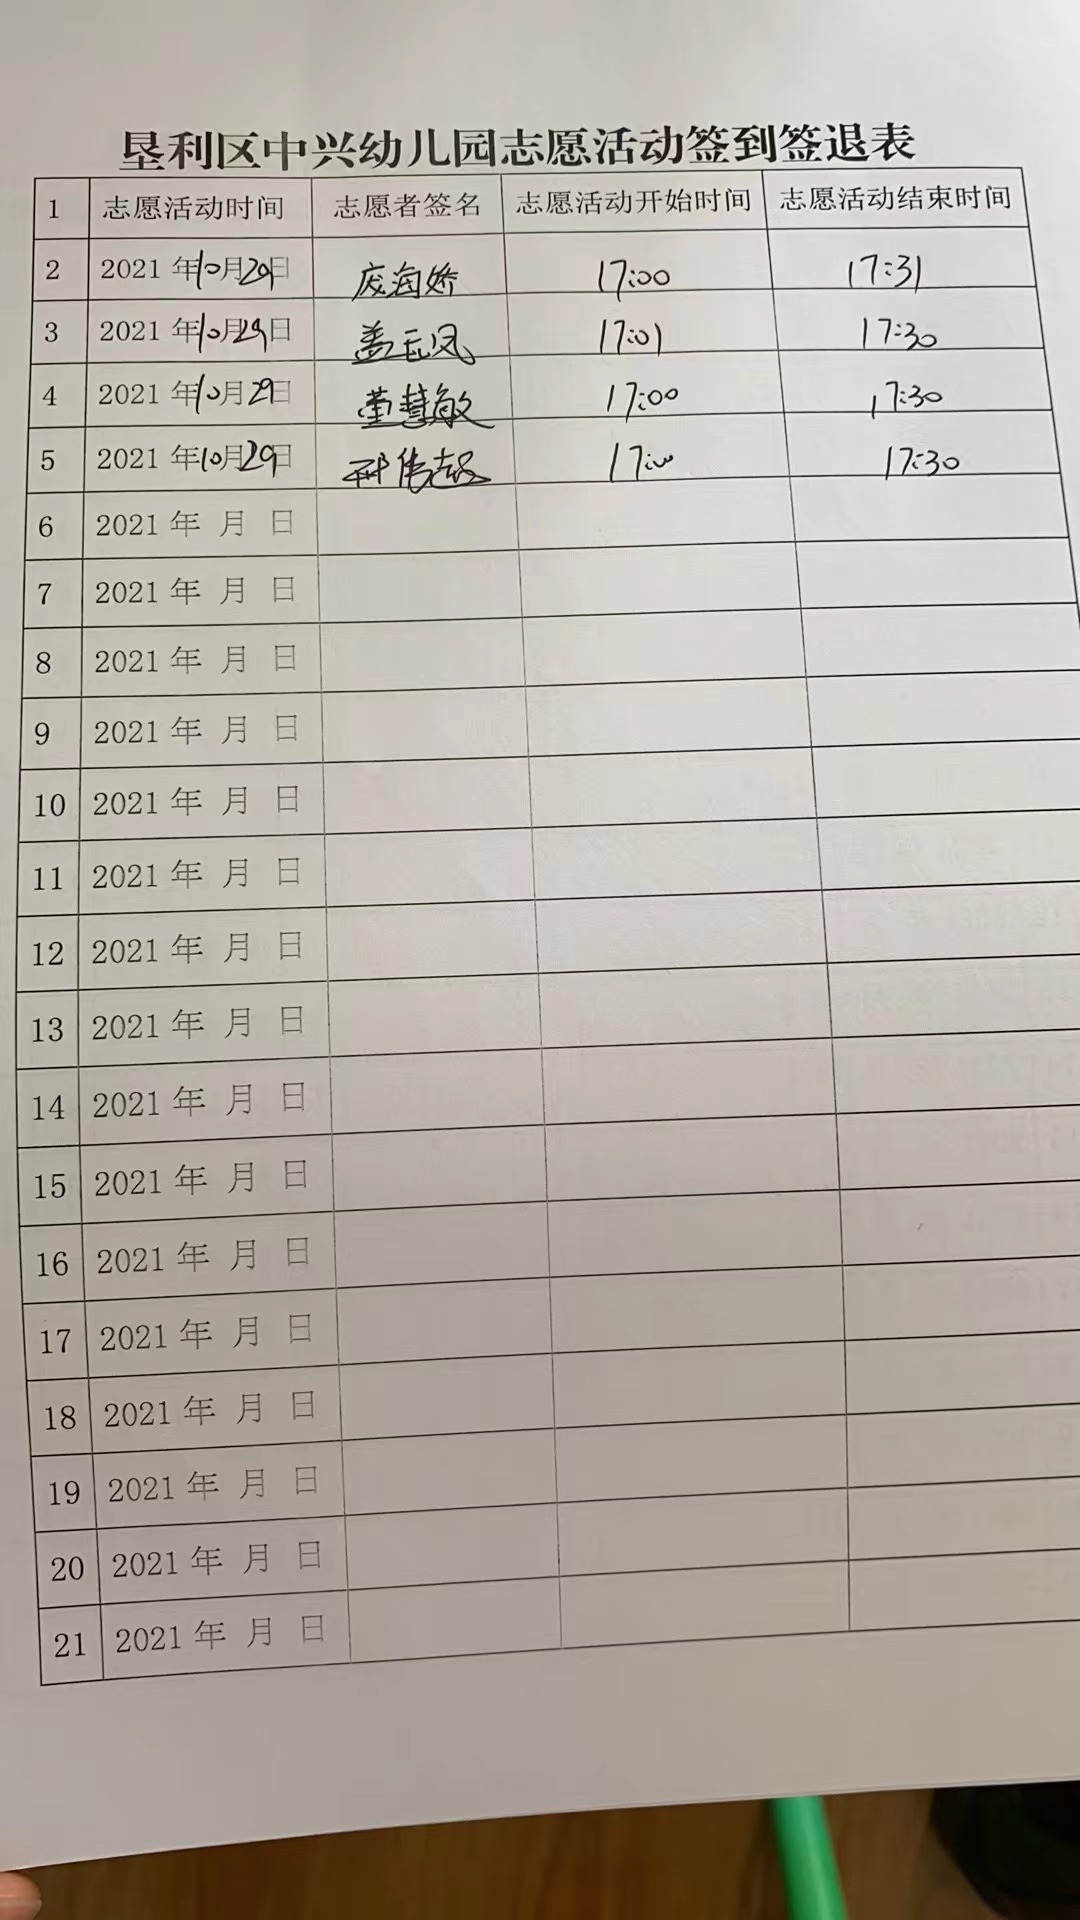 垦利区中兴幼儿园志愿活动签到签退表
1 志愿活动时间 志愿者签名 志愿活动开始时间 志愿活动结束时间
2 2021 年10月29日 庞海娇 17:00 17:31
3 2021 年10月29日 盖玉凤 17:01 17:30
4 2021 年10月29日 董慧敏 17:00 17:30
5 2021 年10月29日 邢伟超 17:00 17:30
6 2021 年 月 日
7 2021 年 月 日
8 2021 年 月 日
9 2021 年 月 日
10 2021 年 月 日
11 2021 年 月 日
12 2021 年 月 日
13 2021 年 月 日
14 2021 年 月 日
15 2021 年 月 日
16 2021 年 月 日
17 2021 年 月 日
18 2021 年 月 日
19 2021 年 月 日
20 2021 年 月 日
21 2021 年 月 日